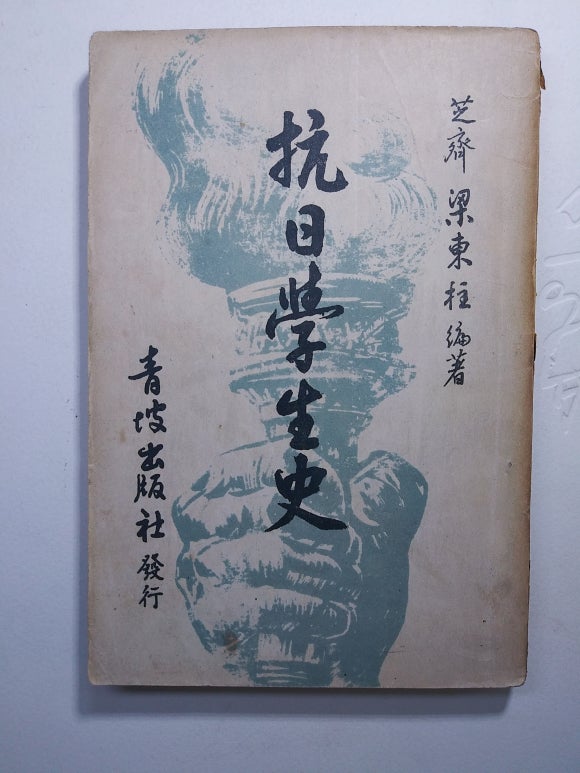 芝齋 梁東柱 編著
抗日學生史
青坡出版社 發行